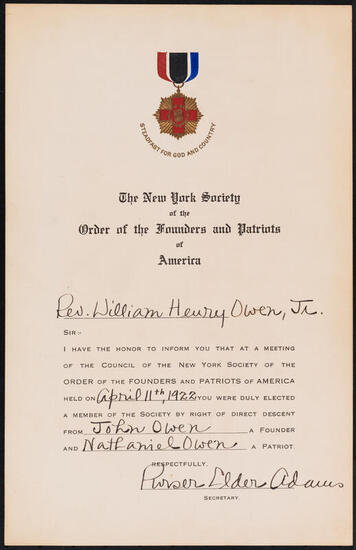 STEADFAST FOR GOD AND COUNTRY
The New York Society
of the
Order of the Founders and Patriots
of
America
Rev. William Henry Owen, Jr.
SIR:-
I HAVE THE HONOR TO INFORM YOU THAT AT A MEETING
OF THE COUNCIL OF THE NEW YORK SOCIETY OF THE
ORDER OF THE FOUNDERS AND PATRIOTS OF AMERICA
HELD ON April 11th, 1922 YOU WERE DULY ELECTED
A MEMBER OF THE SOCIETY BY RIGHT OF DIRECT DESCENT
FROM John Owen A FOUNDER
AND Nathaniel Owen A PATRIOT.
RESPECTFULLY,
Elder Adams
SECRETARY.